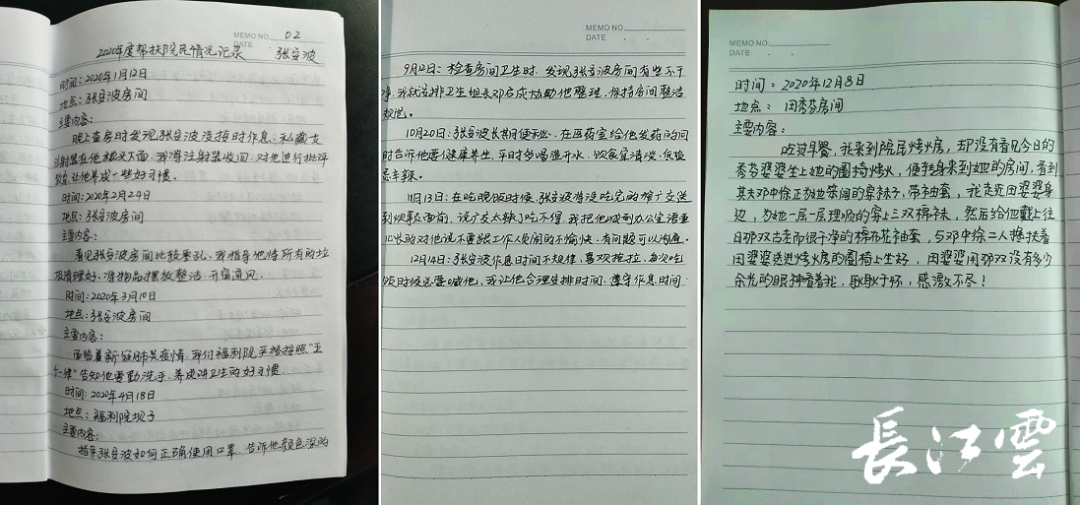 MEMO NO. 02
DATE
2020年度帮扶院民情况记录 张安波
时间:2020年1月12日
地点:张安波房间
主要内容:
晚上查房时发现张安波没按时作息,私藏
注射器在他枕头下面,我将注射器收回,对他进行批评
教育,让他养成一些好习惯。
时间:2020年2月24日
地点:张安波房间
主要内容:
看见张安波房间比较零乱,我指导他将所有的垃
圾清理好,将物品摆放整洁,开窗通风。
时间:2020年3月10日
地点:张安波房间
主要内容:
面临着新冠肺炎疫情,我们福利院严格按照"五
个一律"告知他要勤洗手,养成讲卫生的好习惯。
时间:2020年4月18日
地点:福利院坝子
主要内容:
指导张安波如何正确使用口罩,告诉他颜色深的
MEMO NO.
DATE . .
9月2日:检查房间卫生时,发现张安波房间有些不干
净,我就安排卫生组长邓启成协助他整理,保持房间整洁
10月20日:张安波长期便秘,在医药室给他发药的同
时告诉他要健康养生,平时多喝温开水,饮食宜清淡,低盐
忌辛辣。
11月13日:在吃晚饭时候,张安波将没吃完的 交送
到炊事员面前,说 太辣了吃不得,我把他喊到办公室语重
心长的对他说不要跟工作人员闹的不愉快,有问题可以沟通。
12月14日:张安波作息时间不规律,喜欢拖拉,每次吃
饭时候总要喊他,我让他合理安排时间,遵守作息时间.
MEMO NO.
DATE . .
时间:2020年12月8日
地点:田秀芬房间
主要内容:
吃过早餐,我来到院民烤火房,却没有看见今日的
秀芬婆婆坐上她的圈椅烤火,便转身来到她的房间,看到
其夫邓中徐正为她笨拙的穿袜子,带袖套,我走近田婆婆身
边,为她一层一层理顺的穿上三双棉袜,然后给他戴上往
日那双古老而很干净的棉布花袖套,与邓中徐二人搀扶着
田婆婆送进烤火房的圈椅上坐好,田婆婆用那双没有多少
余光的眼神看着我,耿耿于怀,感激不尽!
長江雲